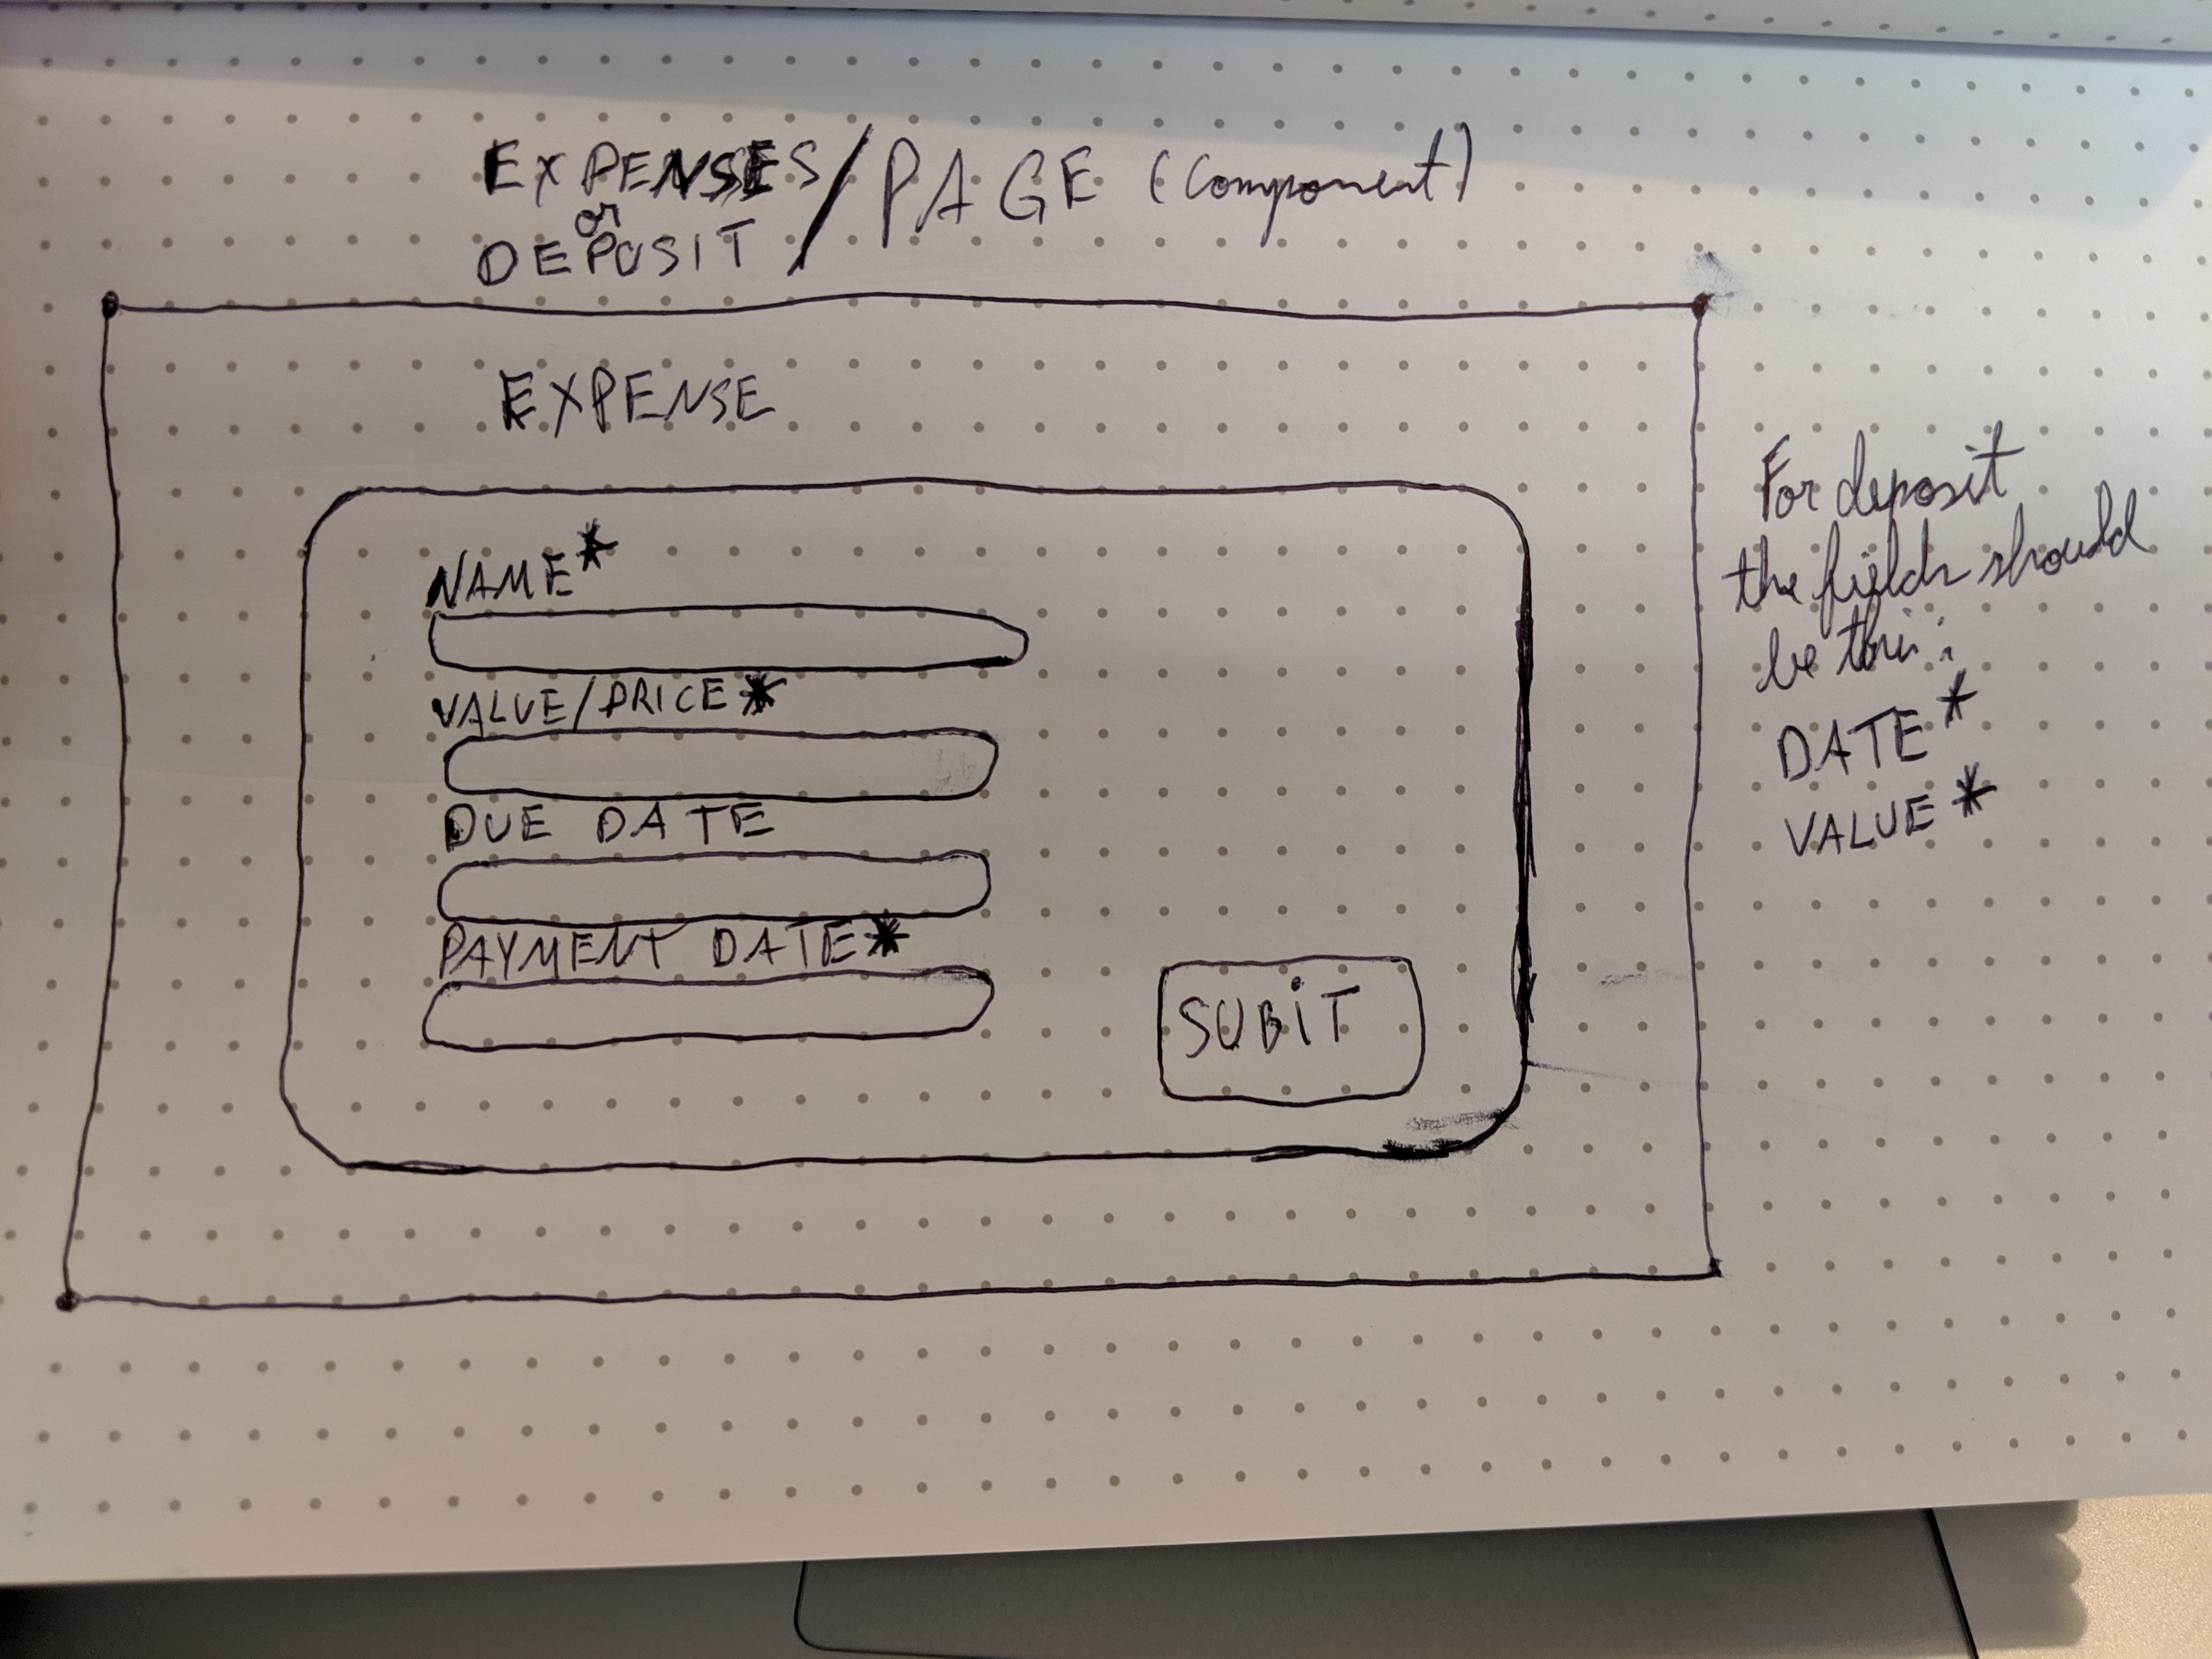 EXPENSES/PAGE (Component)
or
DEPOSIT
EXPENSE
NAME*
VALUE/PRICE*
DUE DATE
PAYMENT DATE*
SUBIT
For deposit
the fields should
be this:
DATE*
VALUE*